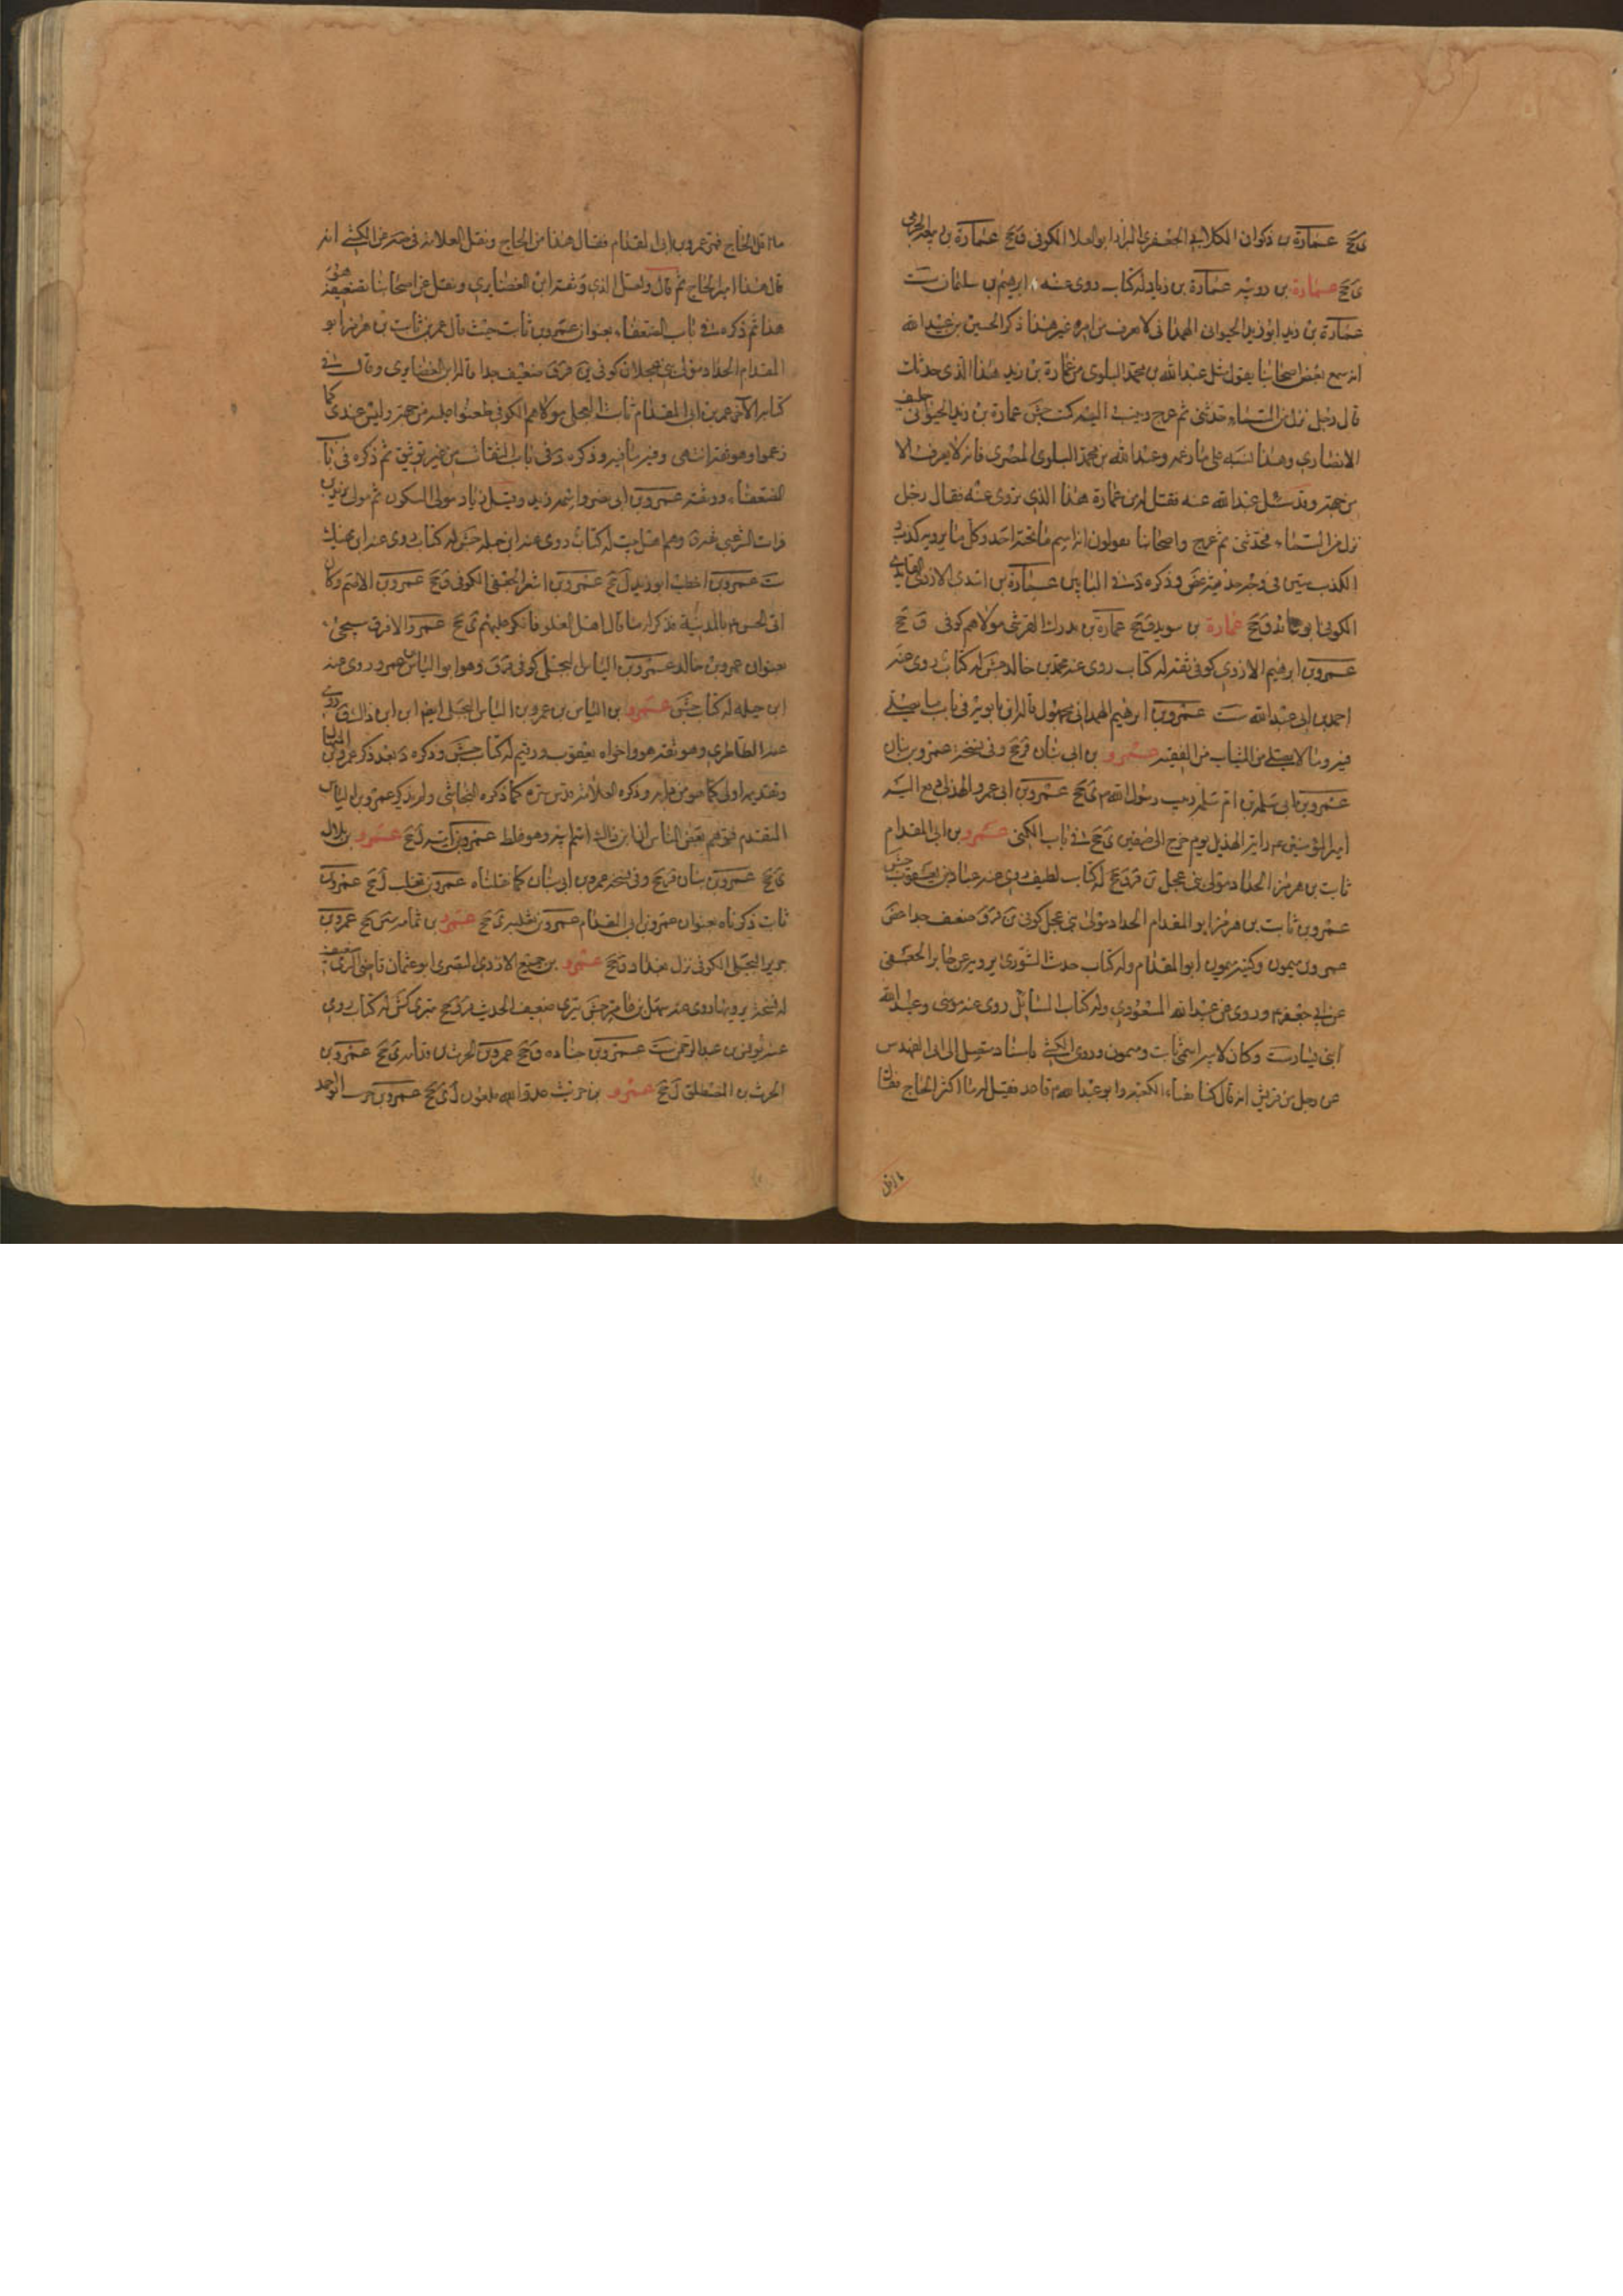 ق جخ عمارة بن ذكوان الكلابي الجعفري البزاز ابو العلا الكوفي ق جخ عمارة بن
ى جخ عمارة بن رويبه عمارة بن زياد له كتاب روى عنه ابرهيم بن سليمان ست
عمارة بن زيد ابو زيد الخيواني الهمداني لا يعرف من امره غير هذا ذكر الحسين بن عبيد الله
انه سمع بعض اصحابنا يقول سئل عبد الله بن محمد البلوي من عمارة بن زيد هذا الذي حدثك
قال رجل نزل من السماء حدثني ثم عرج جش عمارة بن زيد الخيواني حليف
الانصاري وعبد الله بن محمد البلوي المصري فانه لا يعرف الا
من جهته وقد سئل عبد الله عنه فقيل له من عمارة هذا الذي تروى عنه فقال رجل
نزل من السماء فحدثني ثم عرج واصحابنا يقولون انه اسم ما تحته احد وكل ما يرويه كذب
الكذب بيّن في وجه حديثه غض وذكره د في البابين عمارة بن الازدي
الكوفي ق جخ عمارة بن سويد ق جخ عمارة بن مدرك القرشي مولاهم كوفي ق جخ
عمرو بن ابرهيم الازدي كوفي ثقة له كتاب روى عنه محمد بن خالد جش له كتاب روى عنه
احمد بن ابي عبد الله ست عمرو بن ابرهيم الهمداني مجهول قاله ابن بابويه في باب ما يصلى
فيه وما لا يصلى من الثياب من الفقيه عمرو بن ابي بنان قر جخ وفي نسخة عمرو بن بنان
عمرو بن ابي سلمة بن ام سلمة ربيب رسول الله ى جخ عمرو بن ابي عمرو الهذلي دفع اليه
امير المؤمنين ع راية الهذيل يوم خرج الى صفين ى جخ في باب الكنى عمرو بن ابي المقدام
ثابت بن هرمز الحداد مولى بني عجل ين قر ق جخ له كتاب لطيف روى عنه عباد بن يعقوب جش
عمرو بن ثابت بن هرمز ابو المقدام الحداد مولى بني عجل كوفي ين قر ق ضعيف جدا غض
عمرو بن ميمون وكنيه ميمون ابو المقدام وله كتاب حديث الشورى يرويه عن جابر الجعفي
عن ابي جعفر ع وروى عن عبد الله المسعودي وله كتاب المسائل روى عنه موسى وعبد الله
ابني يسار ست وكان لابيه اسمي ثابت وميمون وروى الكشي باسناد متصل الى ابي
عن رجل من قريش انه قال كنا بفناء الكعبة وابو عبد الله ع قاعد فقيل له ما اكثر الحاج فقال
ما اقل الحاج فمر عمرو بن ابي المقدام فقال هذا من الحاج ونقل العلامة في عن الكشي انه
قال هذا امير الحاج ثم قال ولعل الذي وثقه ابن الغضايري ونقل عن اصحابنا تضعيفه هو
هذا ثم ذكره في باب الضعفاء بعنوان عمرو بن ثابت حيث قال عمر بن ثابت بن هرمز ابو
المقدام الحداد مولى بني عجلان كوفي ين قر ق ضعيف جدا قاله ابن الغضايري وقال في
كتابه الآخر عمر بن ابي المقدام ثابت العجلي مولاهم الكوفي طعنوا عليه من جهته وليس عندي كما
زعموا وهو ثقة انتهى وفيه ما فيه وذكره د في باب الثقات من غير توثيق ثم ذكره في باب
الضعفاء ووثقه عمرو بن ابي نصر واسمه زيد وقيل زياد مولى السكون ثم مولى يزيد بن
فرات الشرعبي ثقة ق وهم اهل بيت له كتاب روى عنه ابن جبلة جش له كتاب روى عنه ابن نهيك
ست عمرو بن اخطب ابو زيد ل جخ عمرو بن اشعر الجعفي الكوفي ق جخ عمرو بن
ابي الحسن ع بالمدينة فذكر له ما قال اهل العلو فانكر عليهم ى جخ عمرو الافرق سيجئ
بعنوان عمرو بن خالد عمرو بن الياس البجلي كوفي قر ق وهو ابو الياس بن عمرو روى عنه
ابن جبلة له كتاب جش عمرو بن الياس بن عمرو بن الياس البجلي ايضا ابن ابن ذاك ق روى
عنه الطاطري وهو ثقة هو واخواه يعقوب ورقيم له كتاب جش وذكره د بعد ذكر عمرو بن
المتقدم فتوهم بعض الناس ان ابن ذاك اسم ابيه وهو غلط عمرو بن امية ل جخ عمرو بن بلال
ى جخ عمرو بن بنان قر جخ وفي نسخة عمرو بن ابي بنان كما نقلناه عمرو بن تغلب ل جخ عمرو بن
ثابت ذكرناه بعنوان عمرو بن ابي المقدام عمرو بن ثعلبة ى جخ عمرو بن ثمامة جخ عمرو بن
جرير البجلي الكوفي نزل بغداد ق جخ عمرو بن جميع الازدي البصري ابو عثمان قاضي الري ضعيف
له نسخة يرويها روى عنه سهل بن عامر جش بتري ضعيف الحديث قر ق جخ بتري كش له كتاب روى
عنه يونس بن عبد الرحمن ست عمرو بن جناده ق جخ عمرو بن الحرث بن ى جخ عمرو بن
الحرث بن المصطلق ل جخ عمرو بن حريث عدو الله ملعون ل ى جخ عمرو بن
ما اقل